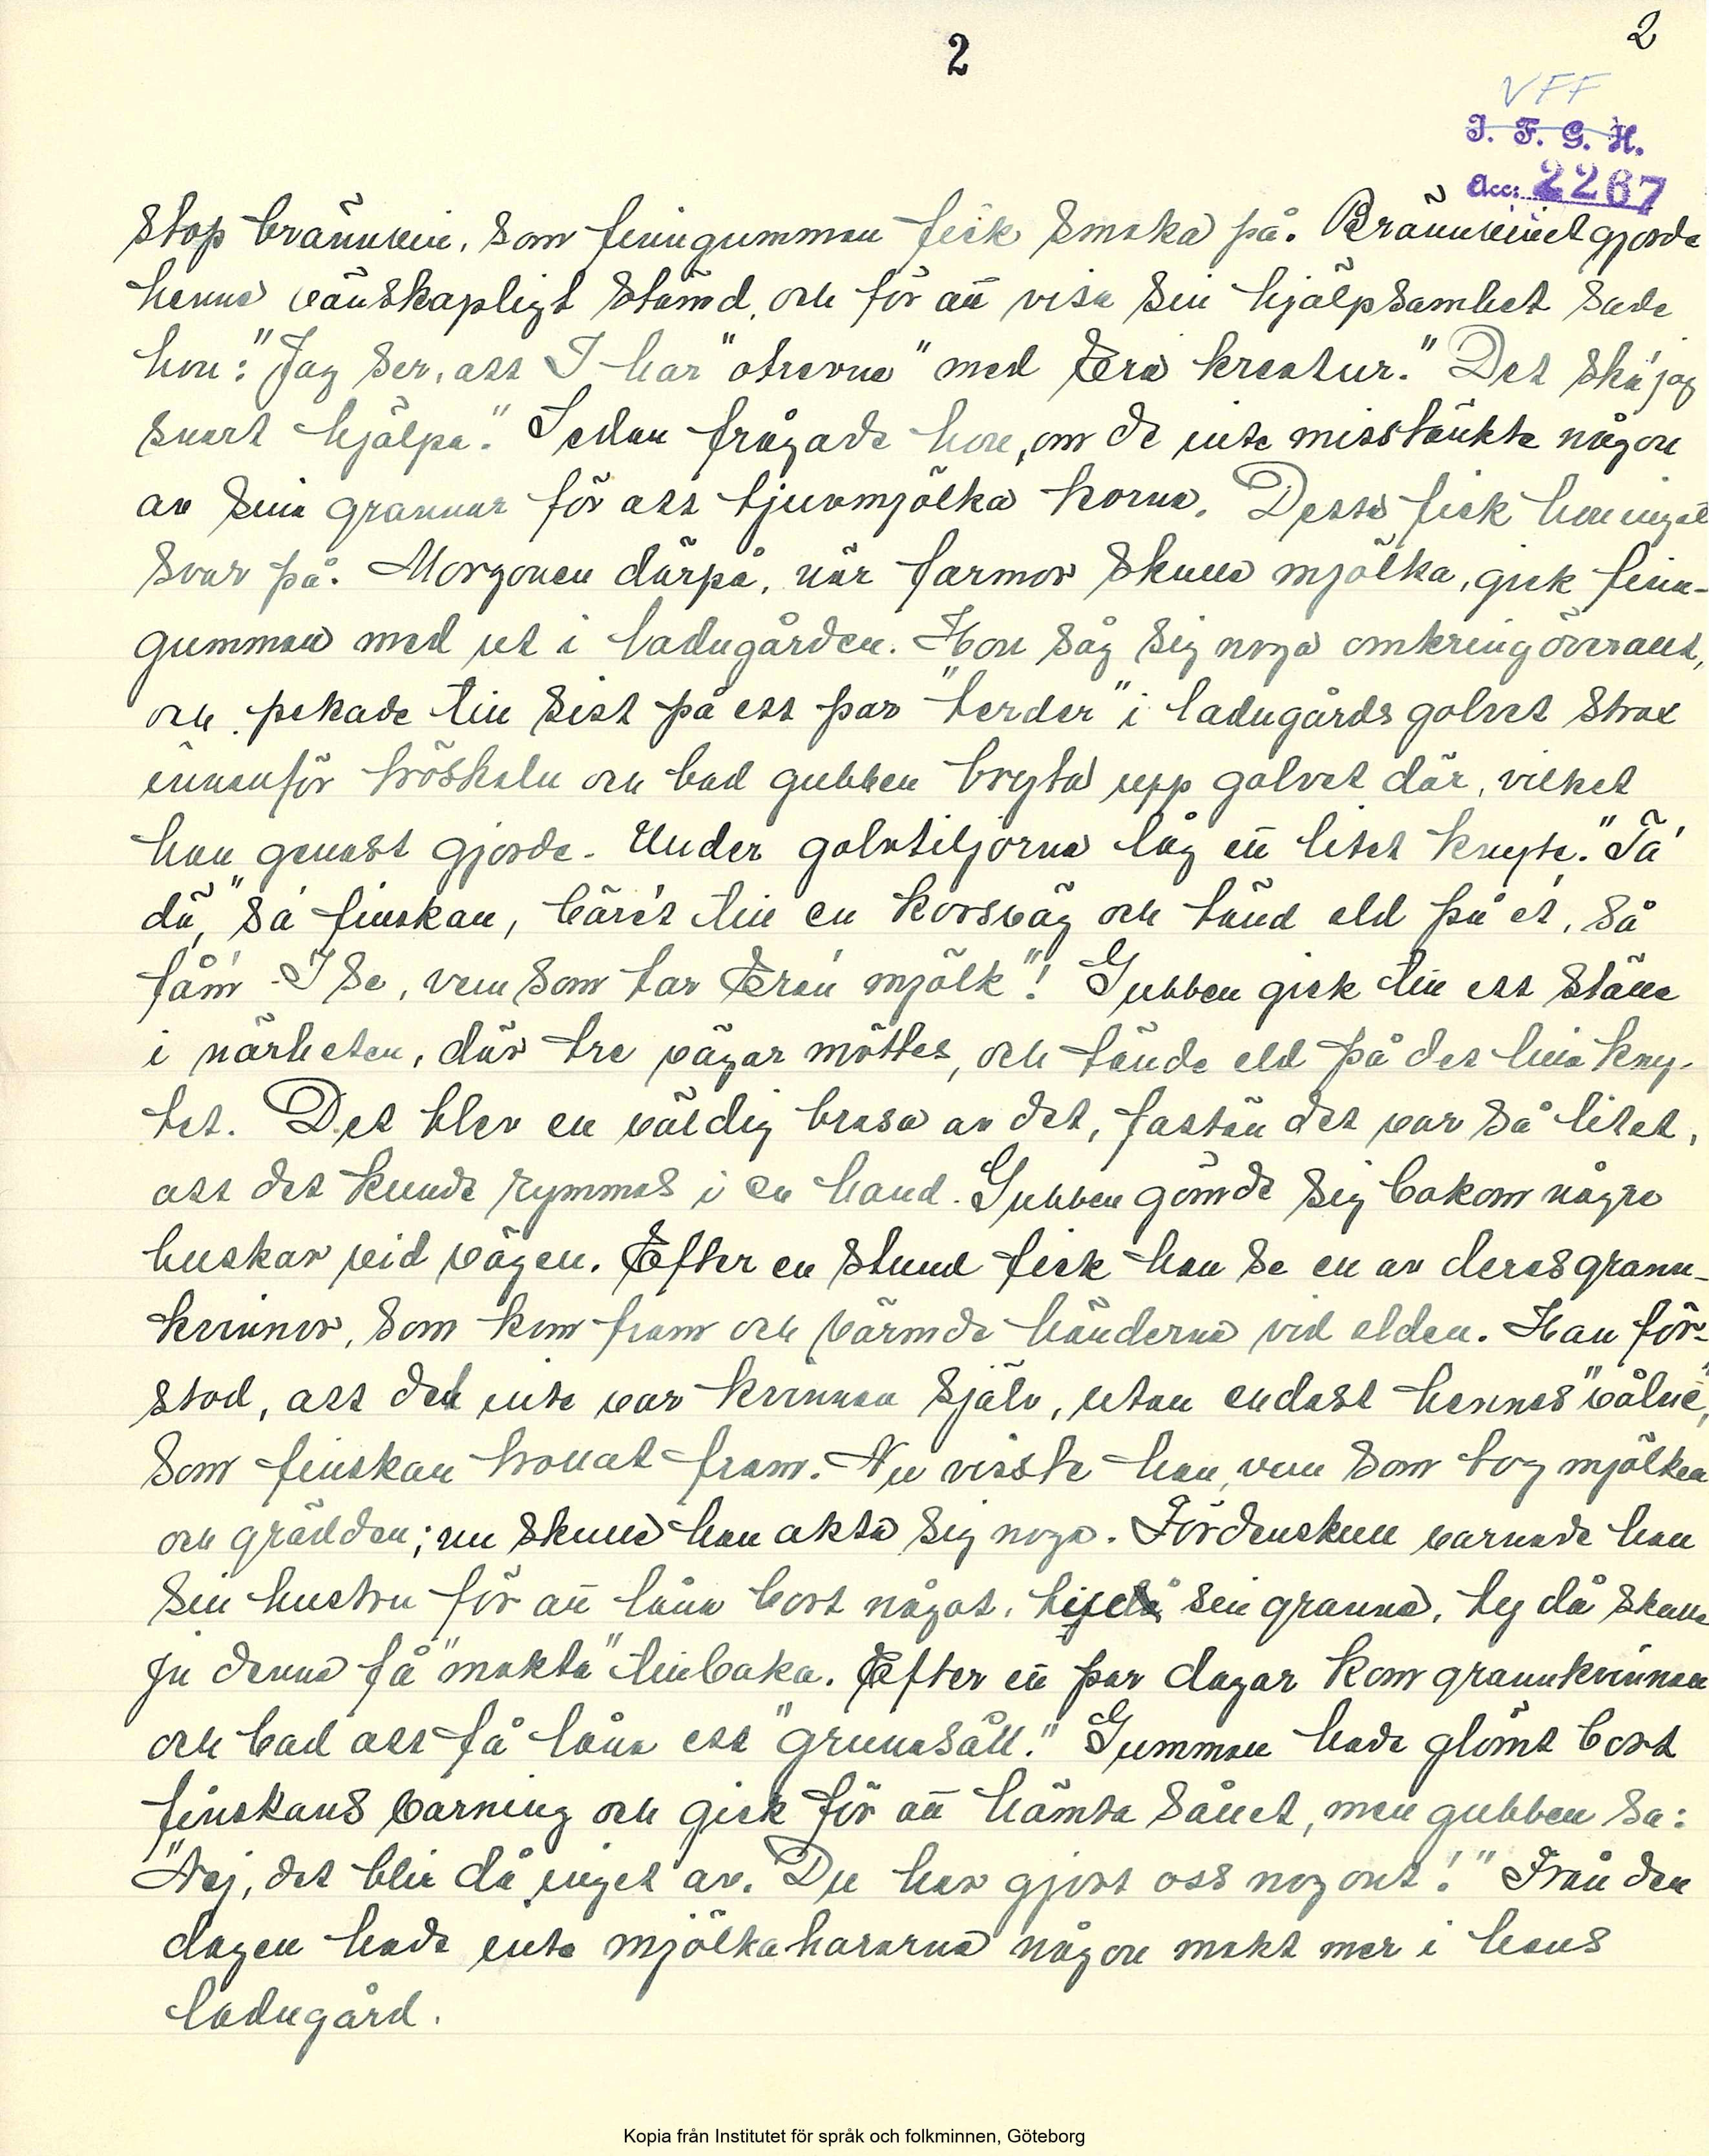 2
2
VFF
I. F. G. H.
Acc: 2267
stop brännvin, som finngumman fick smaka på. Brännvinet gjorde
henne vänskapligt stämd, och för att visa sin hjälpsamhet sade
hon: "Jag ser, att I har "otrevne" med Era kreatur." Det ska' jag
snart hjälpa." Sedan frågade hon, om de inte misstänkte någon
av sina grannar för att tjuvmjölka korna. Detta fick hon inget
svar på. Morgonen därpå, när farmor skulle mjölka, gick finn-
gumman med ut i ladugården. Hon såg sig noga omkring överallt,
och pekade till sist på ett par "terder" i ladugårdsgolvet strax
innanför tröskeln och bad gubben bryta upp golvet där, vilket
han genast gjorde. Under golvtiljorna låg ett litet knyte. "Ta'
dä," sa' finskan, bäre't till en korsväg och tänd eld på e't, så
få'm I se, vem som tar Era' mjölk"! Gubben gick till ett ställe
i närheten, där tre vägar möttes, och tände eld på det lilla kny-
tet. Det blev en väldig brasa av det, fastän det var så litet,
att det kunde rymmas i en hand. Gubben gömde sig bakom några
buskar vid vägen. Efter en stund fick han se en av deras grann-
kvinnor, som kom fram och värmde händerna vid elden. Han för-
stod, att det inte var kvinnan själv, utan endast hennes "vålne",
som finskan trollat fram. Nu visste han, vem som tog mjölken
och grädden; nu skulle han akta sig noga. Fördenskull varnade han
sin hustru för att låna bort något, till sin granne, ty då skulle
ju denna få "makta" tillbaka. Efter ett par dagar kom grannkvinnan
och bad att få låna ett "grynasåll." Gumman hade glömt bort
finskans varning och gick för att hämta sållet, men gubben sa:
"Nej, det blir då inget av. Du har gjort oss nog ont!" Från den
dagen hade inte mjölkahararna någon makt mer i hans
ladugård.
Kopia från Institutet för språk och folkminnen, Göteborg